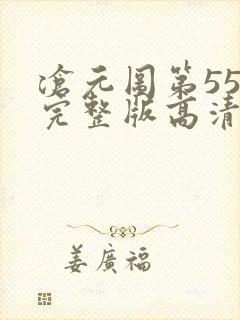 滄元圖第55
完整版高清
姜廣福